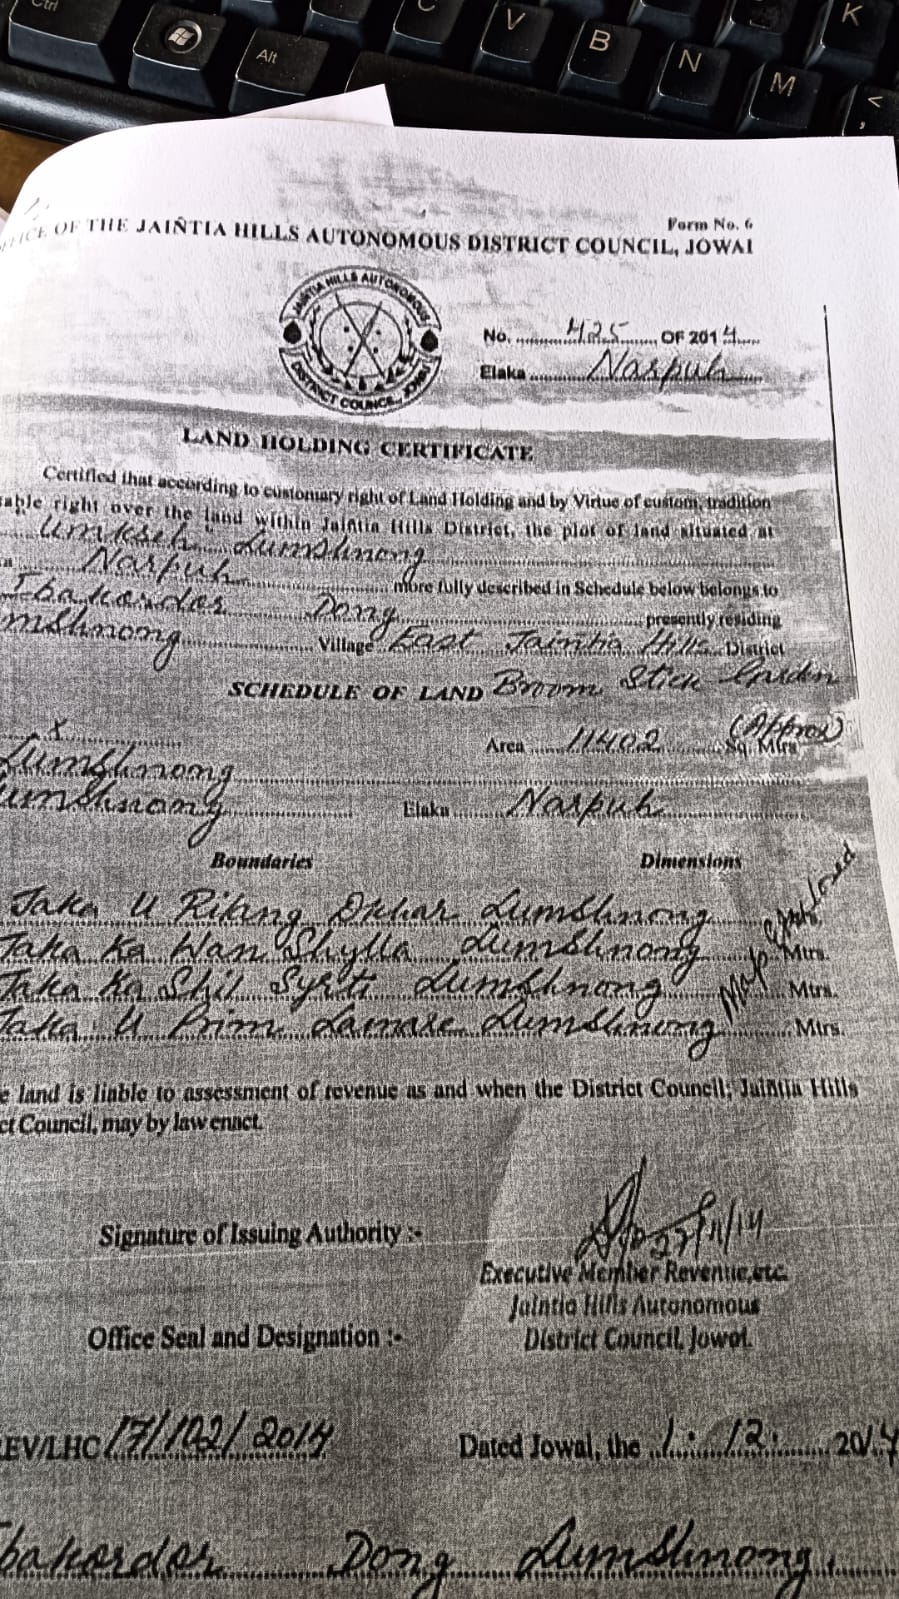 Ctrl
Alt
C
V
B
N
M
K
<
,
Form No. 6
OF THE JAIÑTIA HILLS AUTONOMOUS DISTRICT COUNCIL, JOWAI
JAIÑTIA HILLS AUTONOMOUS
DISTRICT COUNCIL, JOWAI
No. 425 OF 2014
Elaka Narpuh
LAND HOLDING CERTIFICATE
Certified that according to customary right of Land Holding and by Virtue of custom, tradition
able right over the land within Jaintia Hills District, the plot of land situated at
Umkseh Lumshnong
Narpuh more fully described in Schedule below belongs to
Ibakordor Dong presently residing
mshnong Village East Jaintia Hills District
SCHEDULE OF LAND Broom Stick Garden
x Area 11402 Sq. Mtrs (Approx)
Lumshnong
Lumshnong Elaka Narpuh
Boundaries Dimensions
Jaka U Ritang Dkhar Lumshnong
Jaka Ka Wan Shylla Lumshnong Mtrs.
Jaka Ka Shil Syrti Lumshnong Mtrs.
Jaka U Prim Lamare Lumshnong Mtrs.
Map Enclosed
e land is liable to assessment of revenue as and when the District Council; Jaintia Hills
ct Council, may by law enact.
Signature of Issuing Authority :-
27/11/14
Executive Member Revenue, etc.
Jaintia Hills Autonomous
District Council, Jowai.
Office Seal and Designation :-
EV/LHC 17/102/2014 Dated Jowai, the 1. 12. 2014
bakordor Dong Lumshnong.